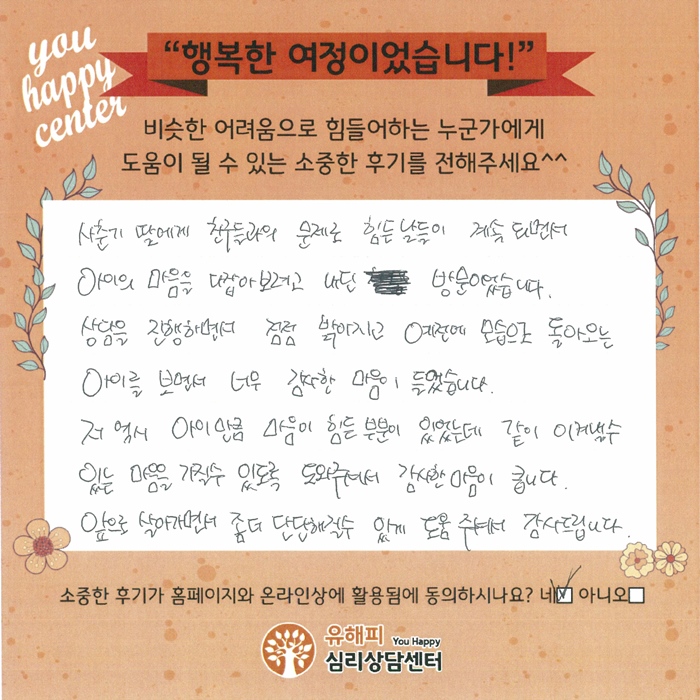 you
happy
center
“행복한 여정이었습니다!”
비슷한 어려움으로 힘들어하는 누군가에게
도움이 될 수 있는 소중한 후기를 전해주세요^^
사춘기 딸에게 친구들과의 문제로 힘든 날들이 계속 되면서
아이의 마음을 다잡아보려고 내딘 방문이었습니다.
상담을 진행하면서 점점 밝아지고 예전에 모습으로 돌아오는
아이를 보면서 너무 감사한 마음이 들었습니다.
저 역시 아이만큼 마음이 힘든 부분이 있었는데 같이 이겨낼수
있는 마음을 가질수 있도록 도와주셔서 감사한 마음이 큽니다.
앞으로 살아가면서 좀더 단단해질수 있게 도움 주셔서 감사드립니다.
소중한 후기가 홈페이지와 온라인상에 활용됨에 동의하시나요? 네☑ 아니오☐
유해피 You Happy
심리상담센터